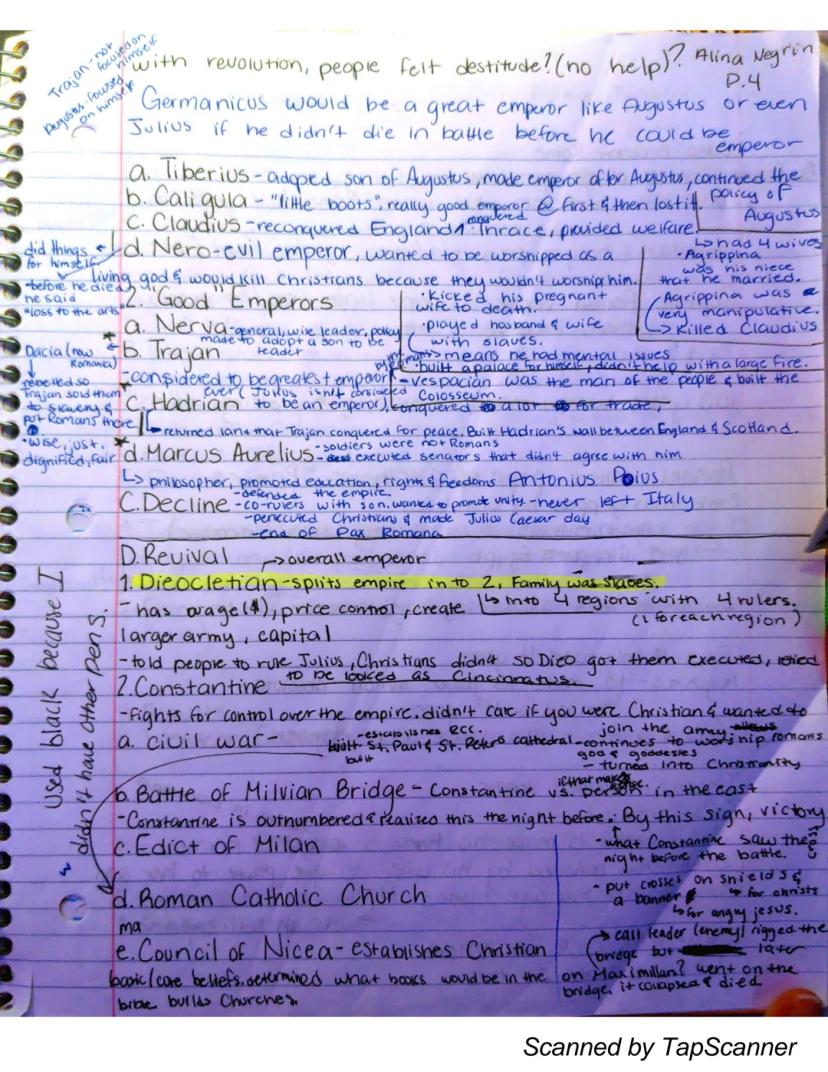 Trajan - not focused on himself
Augustus - focused on himself
with revolution, people felt destitude? (no help)? Alina Negrin
P.4
Germanicus would be a great emperor like Augustus or even
Julius if he didn't die in battle before he could be
emperor
a. Tiberius - adoped son of Augustus, made emperor after Augustus, continued the
policy of
Augustus
b. Caligula - "little boots", really good emperor @ first & then lost it.
c. Claudius - reconquered England, conquered Thrace, provided welfare.
↳ had 4 wives
• Agrippina
was his niece
that he married.
Agrippina was a
very manipulative.
→ Killed Claudius
did things
for himself
- before he died
he said
"loss to the arts"
d. Nero - evil emperor, wanted to be worshipped as a
living god & would kill Christians because they wouldn't worship him.
• Kicked his pregnant
wife to death.
• played husband & wife
with slaves.
means he had mental issues
• built a palace for himself, didn't help with a large fire.
- Vespacian was the man of the people & built the
Colosseum.
2. "Good" Emperors
a. Nerva - general, wise leader, policy
made to adopt a son to be
leader
Dacia (now
Romania)
rebelled so
Trajan sold them
to slavery &
put Romans there
b. Trajan
- considered to be greatest emperor
ever (Julius isn't considered
to be an emperor), conquered a lot for trade,
c. Hadrian
↳ returned land that Trajan conquered for peace. Built Hadrian's wall between England & Scotland.
• wise, just,
dignified, fair
d. Marcus Aurelius - soldiers were not Romans
- executed senators that didn't agree with him
↳ philosopher, promoted education, rights & freedoms Antonius Poius
C. Decline - defended the empire
- co-rulers with son. wanted to promote unity. - never left Italy
- persecuted Christians & made Julius Caesar day
- end of Pax Romana
D. Revival → overall emperor
1. Dieocletian - splits empire in to 2, Family was slaves.
↳ into 4 regions with 4 rulers.
(1 for each region)
- has wage ($), price control, create
larger army, capital
- told people to rule Julius, Christians didn't so Dieo got them executed, retied
to be looked as Cincinnatus.
2. Constantine
- fights for control over the empire. didn't care if you were Christian & wanted to
join the army
a. civil war -
- establishes RCC.
built - St. Paul & St. Peter's cathedral
built
- continues to worship romans
god & goddesses
- turned into Christianity
b. Battle of Milvian Bridge - Constantine vs. person in the east
if that makes sense
- Constantine is outnumbered & realized this the night before. By this sign, victory
- what Constantine saw the
night before the battle.
- put crosses on shields &
a banner ↳ for christs
↳ for angry jesus.
→ call leader (enemy) rigged the
bridge but later
on Maximillan? went on the
bridge, it collapsed & died
c. Edict of Milan
d. Roman Catholic Church
ma
e. Council of Nicea - establishes Christian
basic/core beliefs. determined what books would be in the
bible builds Churches.
Used black because I
didn't have other pens.
Scanned by TapScanner